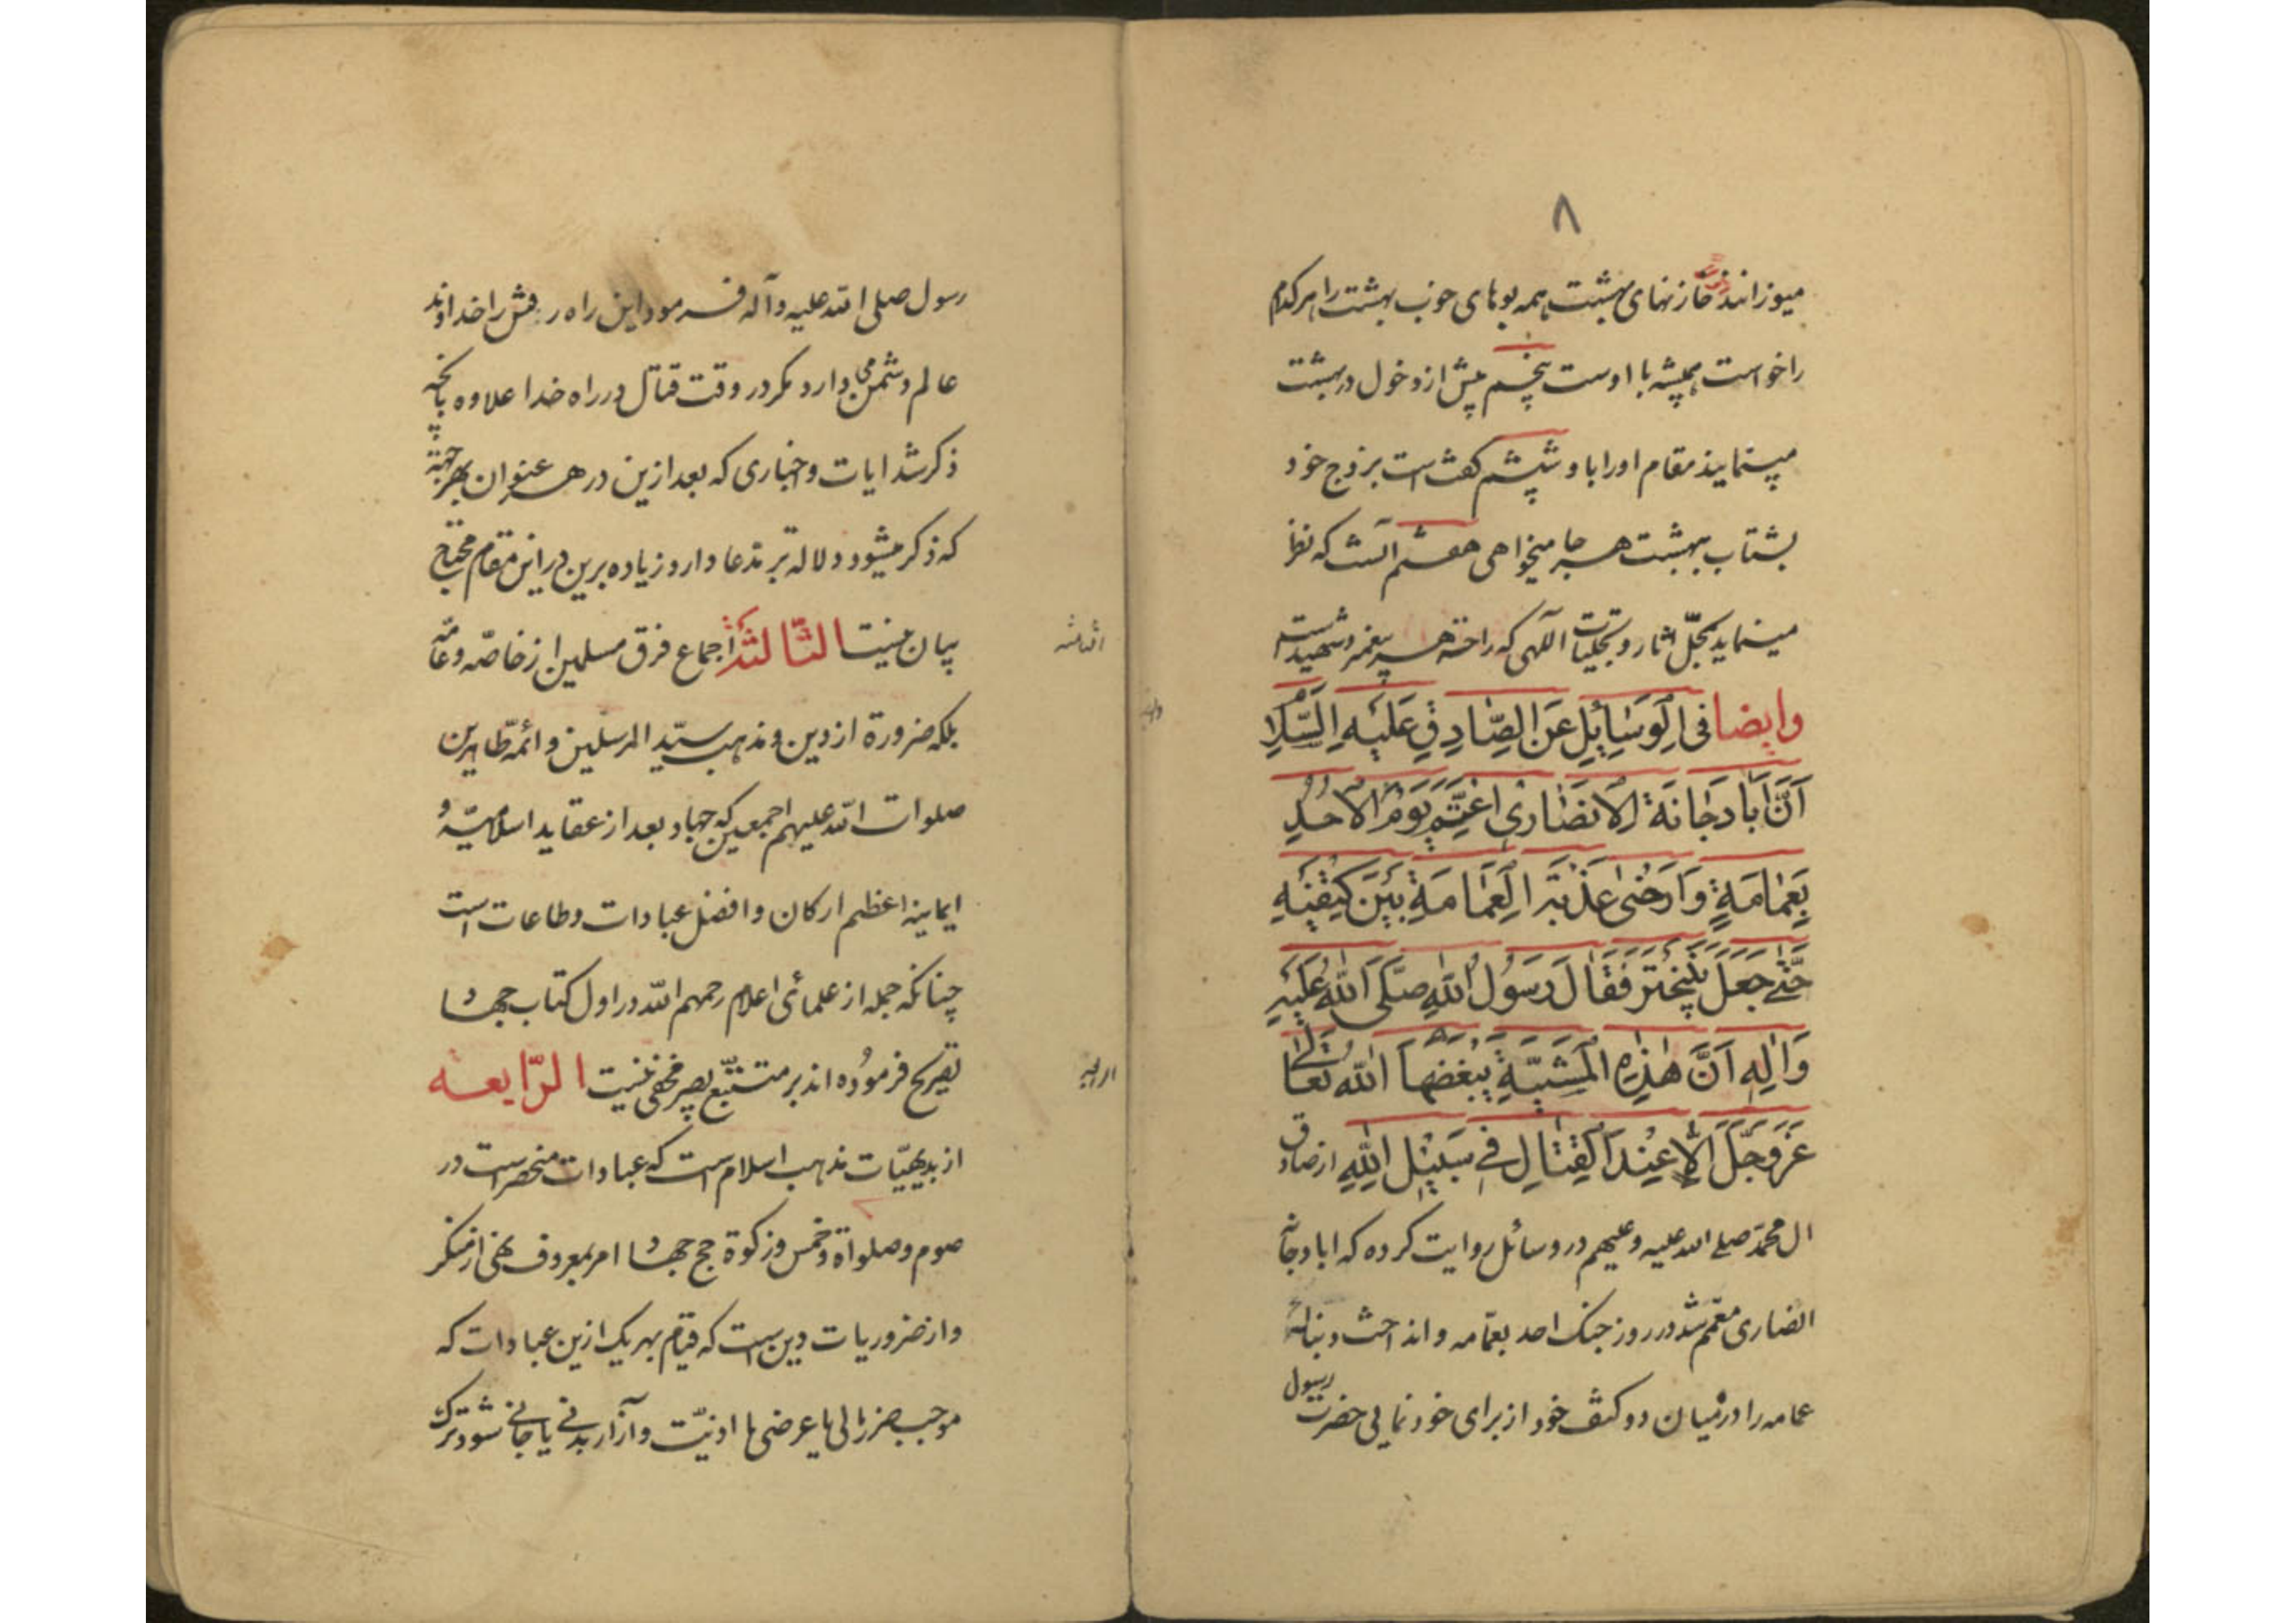 ۸
میوزانند خازنهای بهشت همه بوهای خوب بهشت را هر کدام
را خواست همیشه با اوست پنجم پیش از دخول در بهشت
مینمایند مقام او را باو ششم گفته است بزوج خود
بشتاب ببهشت هر جا میخواهی هفتم آنست که نظر
مینماید بمجلّ اثار و تجلیات آلهی که راحة هر پیغمبر و شهید است
وایضا فی الوسایل عن الصّادق علیه السّلام
اَنَّ اَبا دجانة الانصاری اعتمّ یوم الاُحُدِ
بِعَمامَةٍ وَاَرْخیٰ عذبة العِمامَةِ بَیْنَ کَتِفَیْهِ
حَتّیٰ جَعَلَ یَتَبَخْتَر فَقالَ رَسُول اللهِ صَلَّی اللهُ عَلَیْهِ
وَالِهِ اَنَّ هٰذِهِ المَشیَةِ یبْغضها الله تعالی
عَزَّوَجَلَّ اِلّا عِنْدَ القِتالِ فی سَبیلِ اللهِ از صادق
ال محمّد صلی الله علیه و علیهم در وسائل روایت کرده که ابا دجانه
انصاری معمّم شد در روز جنک احد بعمّامه و انداخت دنباله
عمامه را در میان دو کتف خود از برای خود نمایی حضرت رسول
رسول صلی الله علیه و آله فرمود این راه رفتن را خداوند
عالم دشمن می دارد مکر در وقت قتال در راه خدا علاوه بانچه
ذکر شد ایات و اخباری که بعد ازین در هر عنوان بهر جهة
که ذکر میشود دلالة بر مدعا دارد زیاده برین در این مقام محتاج
بیان نیست الثّالثة اجماع فرق مسلمین از خاصّه و عامّه
الثالثه
بلکه ضرورة از دین و مذهب سیّد المرسلین و ائمّه طاهرین
صلوات الله علیهم اجمعین که جهاد بعد از عقاید اسلامیّه و
ایمانیه اعظم ارکان و افضل عبادات و طاعات است
چنانکه جمله از علمای اعلام رحمهم الله در اول کتاب جهاد
تصریح فرموده اند بر متتبّع بصیر مخفی نیست الرّابعه
از بدیهیّات مذهب اسلام است که عبادات منحصر است در
صوم و صلواة و خمس و زکوة حج جهاد امر بمعروف نهی از منکر
و از ضروریات دین است که قیام بهر یک ازین عبادات که
موجب ضرر مالی یا عرضی یا اذیّت و آزار بدنی یا جانی شود ترک